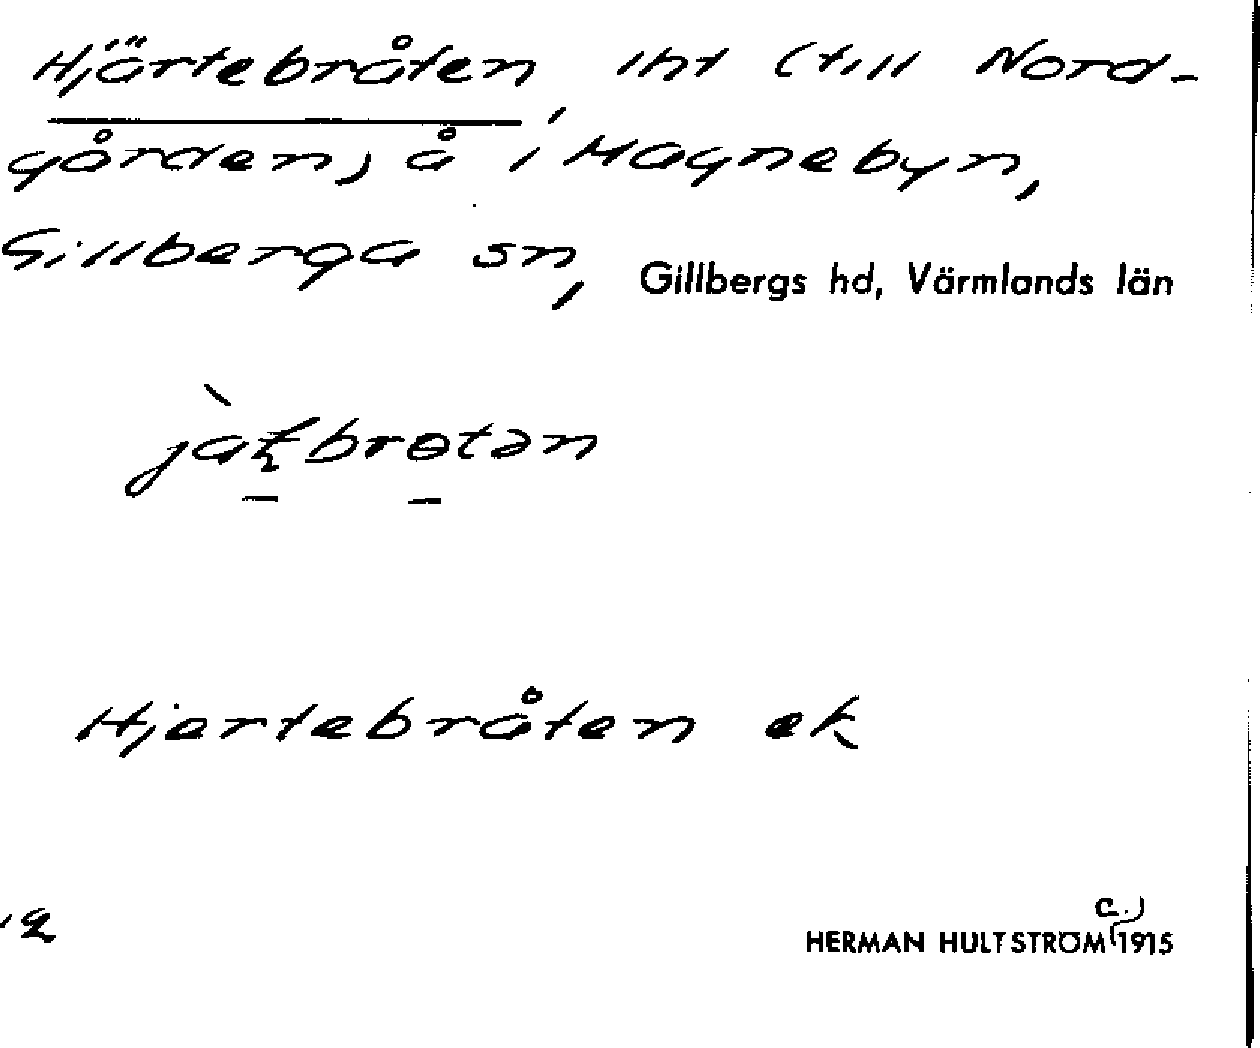 Hjärtebråten, lht (till Nord-
gården) å i Magnebyn,
Gillberga sn, Gillbergs hd, Värmlands län
Hjertebråten ek
c.
HERMAN HULTSTRÖM 1915